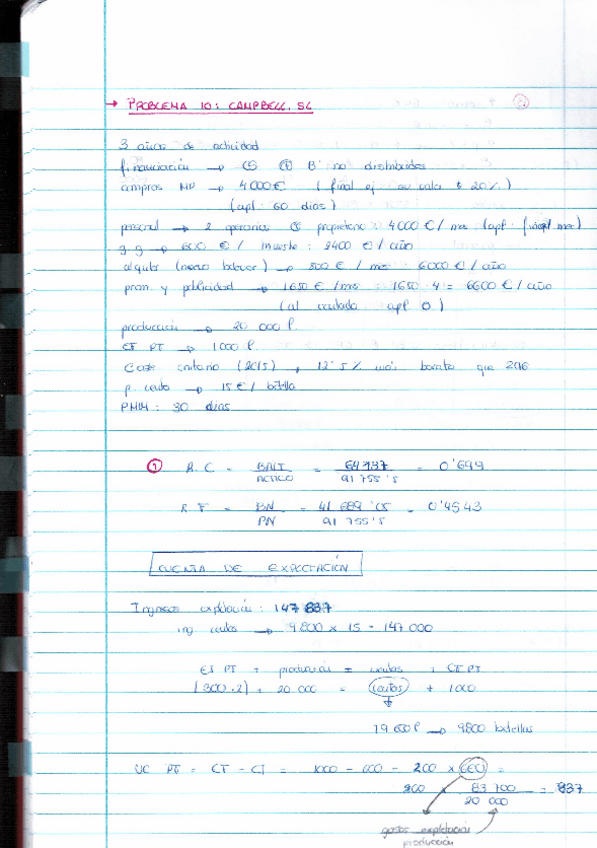 → PROBLEMA 10: CAMPBELL, SL
3 años de actividad
financiación → CS ⊕ Bº no distribuidos
compras MP → 4000€ (final ej su valor ↓ 20%)
(apl: 60 dias)
personal → 2 operarios ⊕ propietario: 4000 €/mes (apl: mes)
g.g → 600 €/ trimestre: 2400 €/año
alquiler (nuevo → 500 €/mes: 6000 €/año
prom. y publicidad → 1650 €/mes: 1650·4 = 6600 €/año
(al contado apl 0)
producción → 20 000 l.
EF PT → 1000 l.
Coste unitario (2015) → 12'5% más barato que 2016
p. venta → 15 €/botella
PMM: 30 dias
① R.C = BAII / ACTIVO = 64137 / 91 755'5 = 0'699
R F = BN / PN = 41 689'05 / 91 755'5 = 0'4543
CUENTA DE EXPLOTACIÓN
Ingresos explotación: 147 837
ing. ventas → 9800 x 15 = 147 000
EI PT + producción = ventas + EF PT
(300·2) + 20 000 = ventas + 1000
19 600 l → 9800 botellas
VE PT = EF - EI = 1000 - 600 - 200 x =
200 x 83 700 / 20 000 = 837
gastos explotación
producción